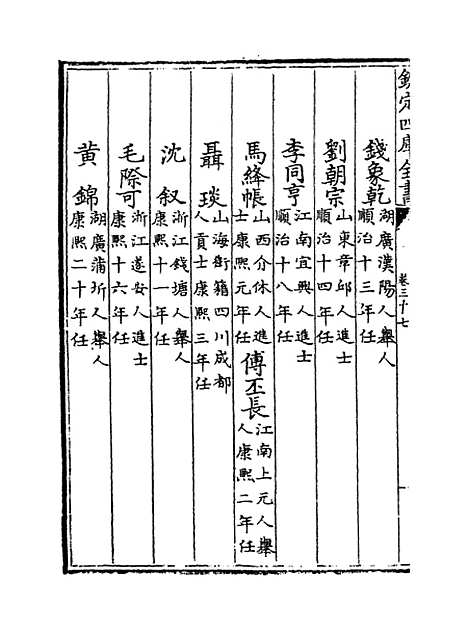 欽定四庫全書
卷三十七
錢象乾湖廣漢陽人舉人順治十三年任
劉朝宗山東章邱人進士順治十四年任
李同亨江南宜興人進士順治十八年任
馬絳帳山西介休人進士康熙元年任 傅丕長江南上元人舉人康熙二年任
聶琰山海衛籍四川成都人貢士康熙三年任
沈叙浙江錢塘人舉人康熙十一年任
毛際可浙江遂安人進士康熙十六年任
黄錦湖廣蒲圻人舉人康熙二十年任